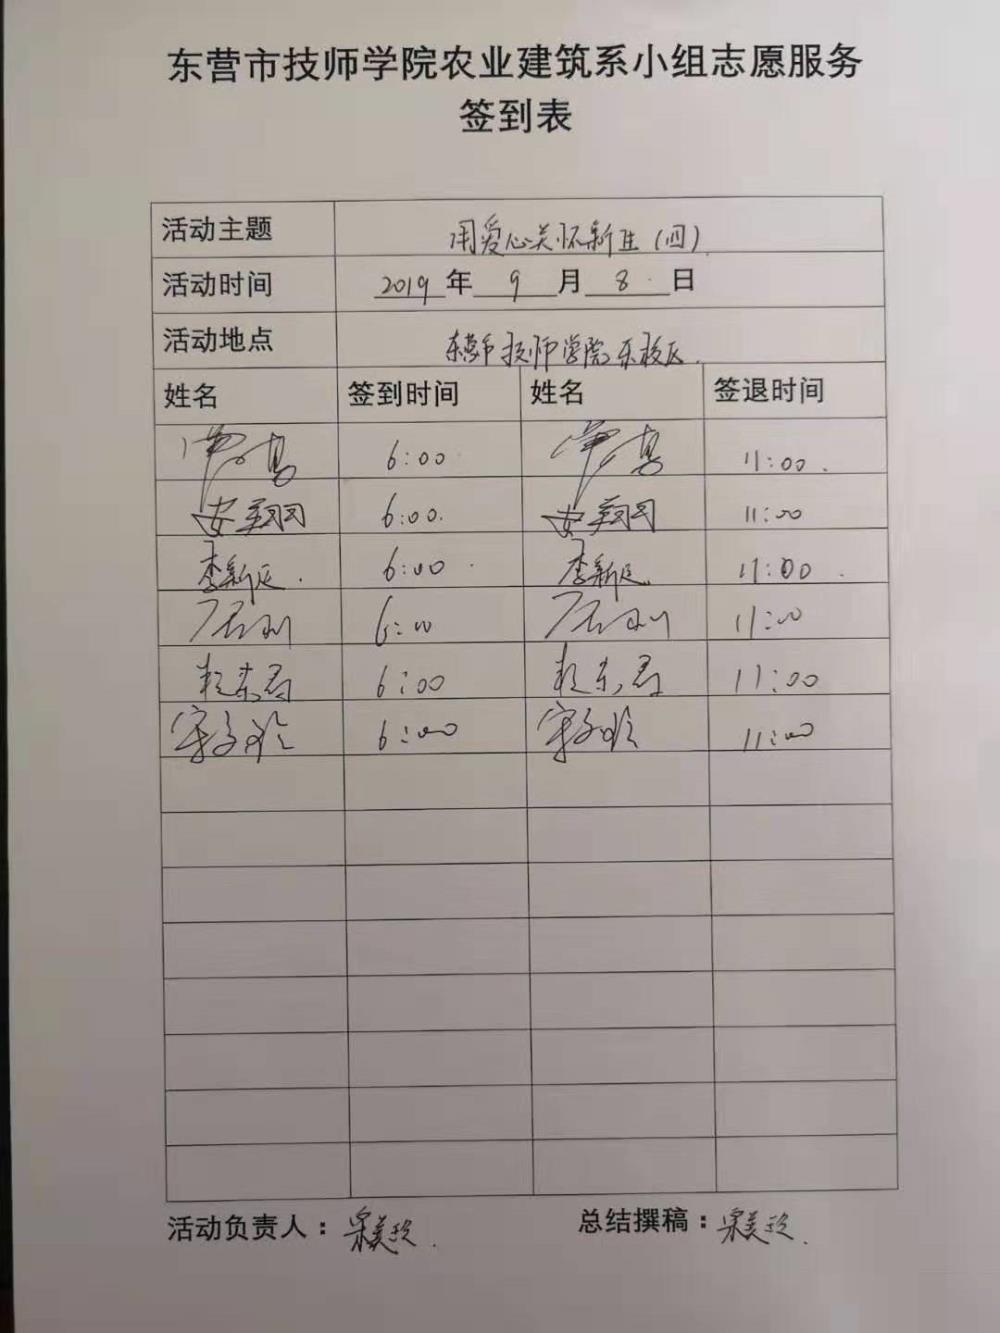 东营市技师学院农业建筑系小组志愿服务
签到表
活动主题 用爱心关怀新生（四）
活动时间 2019年 9 月 8 日
活动地点 东营市技师学院东校区
姓名 签到时间 姓名 签退时间
6:00 11:00
安翔 6:00 安翔 11:00
李新民 6:00 李新民 11:00
6:00 11:00
6:00 11:00
6:00 11:00
活动负责人： 总结撰稿：